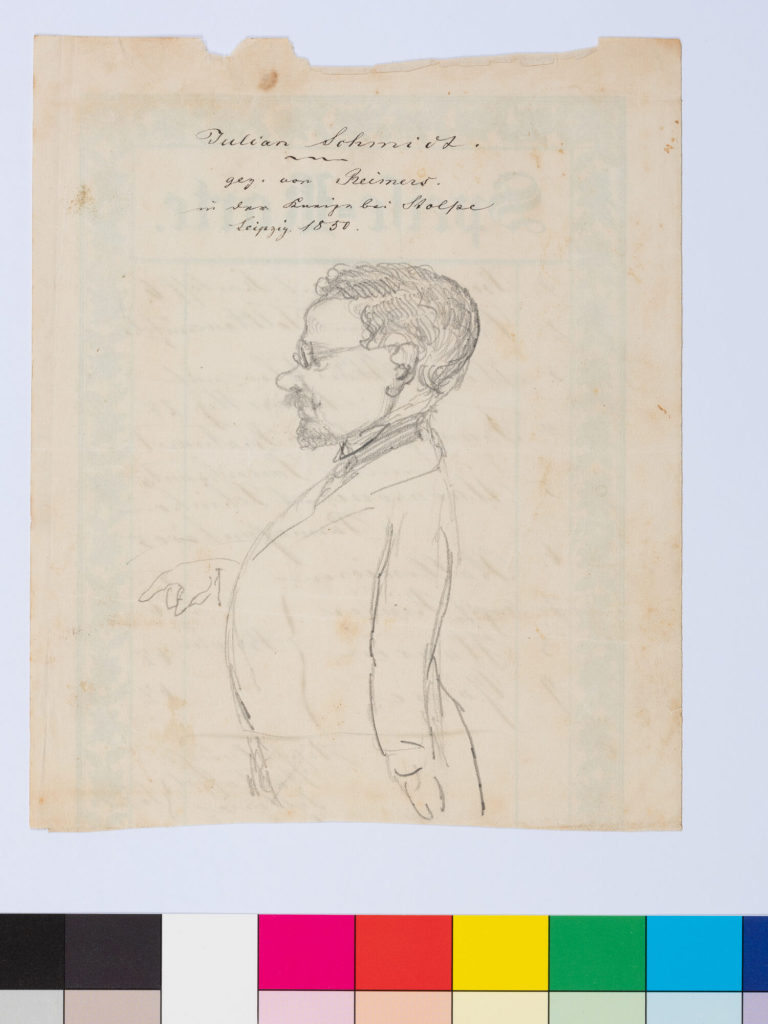 Julian Schmidt.
gez. von Reimers.
in der Kneipe bei Stolpe
Leipzig. 1850.